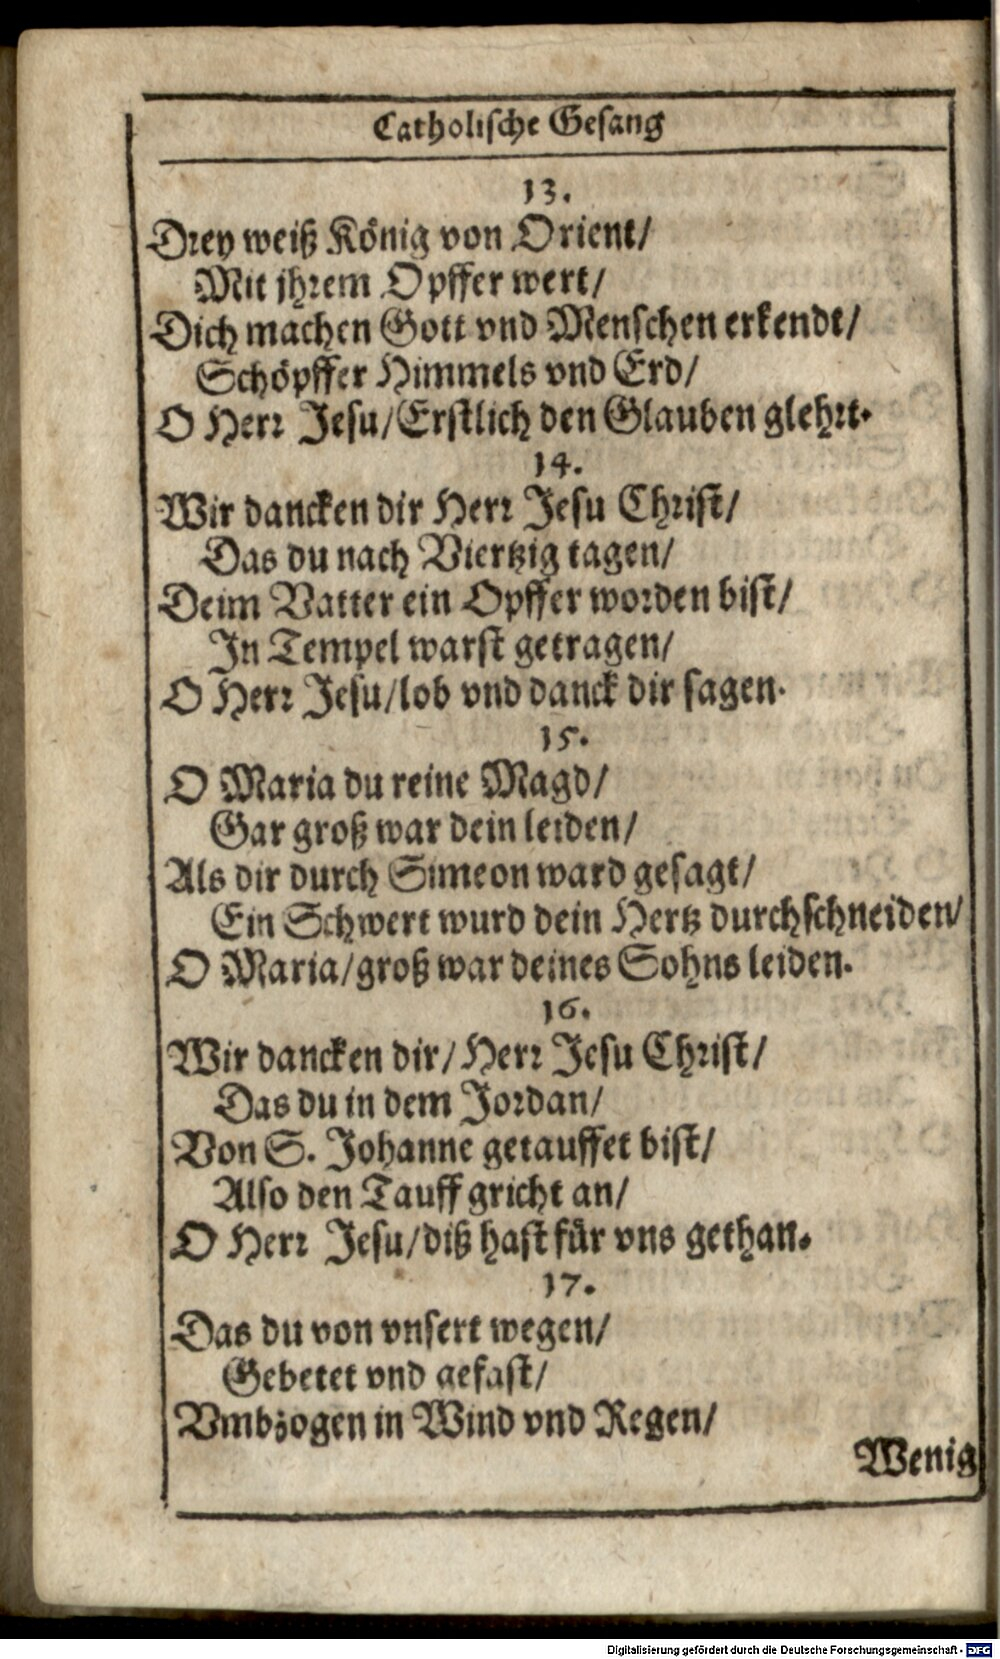 Catholische Gesang
13.
Drey weiß König von Orient/
Mit jhrem Opffer wert/
Dich machen Gott vnd Menschen erkendt/
Schöpffer Himmels vnd Erd/
O Herr Jesu/Erstlich den Glauben glehrt.
14.
Wir dancken dir Herr Jesu Christ/
Das du nach Viertzig tagen/
Deim Vatter ein Opffer worden bist/
In Tempel warst getragen/
O Herr Jesu/lob vnd danck dir sagen.
15.
O Maria du reine Magd/
Gar groß war dein leiden/
Als dir durch Simeon ward gesagt/
Ein Schwert wurd dein Hertz durchschneiden/
O Maria/groß war deines Sohns leiden.
16.
Wir dancken dir/Herr Jesu Christ/
Das du in dem Jordan/
Von S. Johanne getauffet bist/
Also den Tauff gricht an/
O Herr Jesu/diß hast für vns gethan.
17.
Das du von vnsert wegen/
Gebetet vnd gefast/
Vmbzogen in Wind vnd Regen/
Wenig
Digitalisierung gefördert durch die Deutsche Forschungsgemeinschaft - DFG